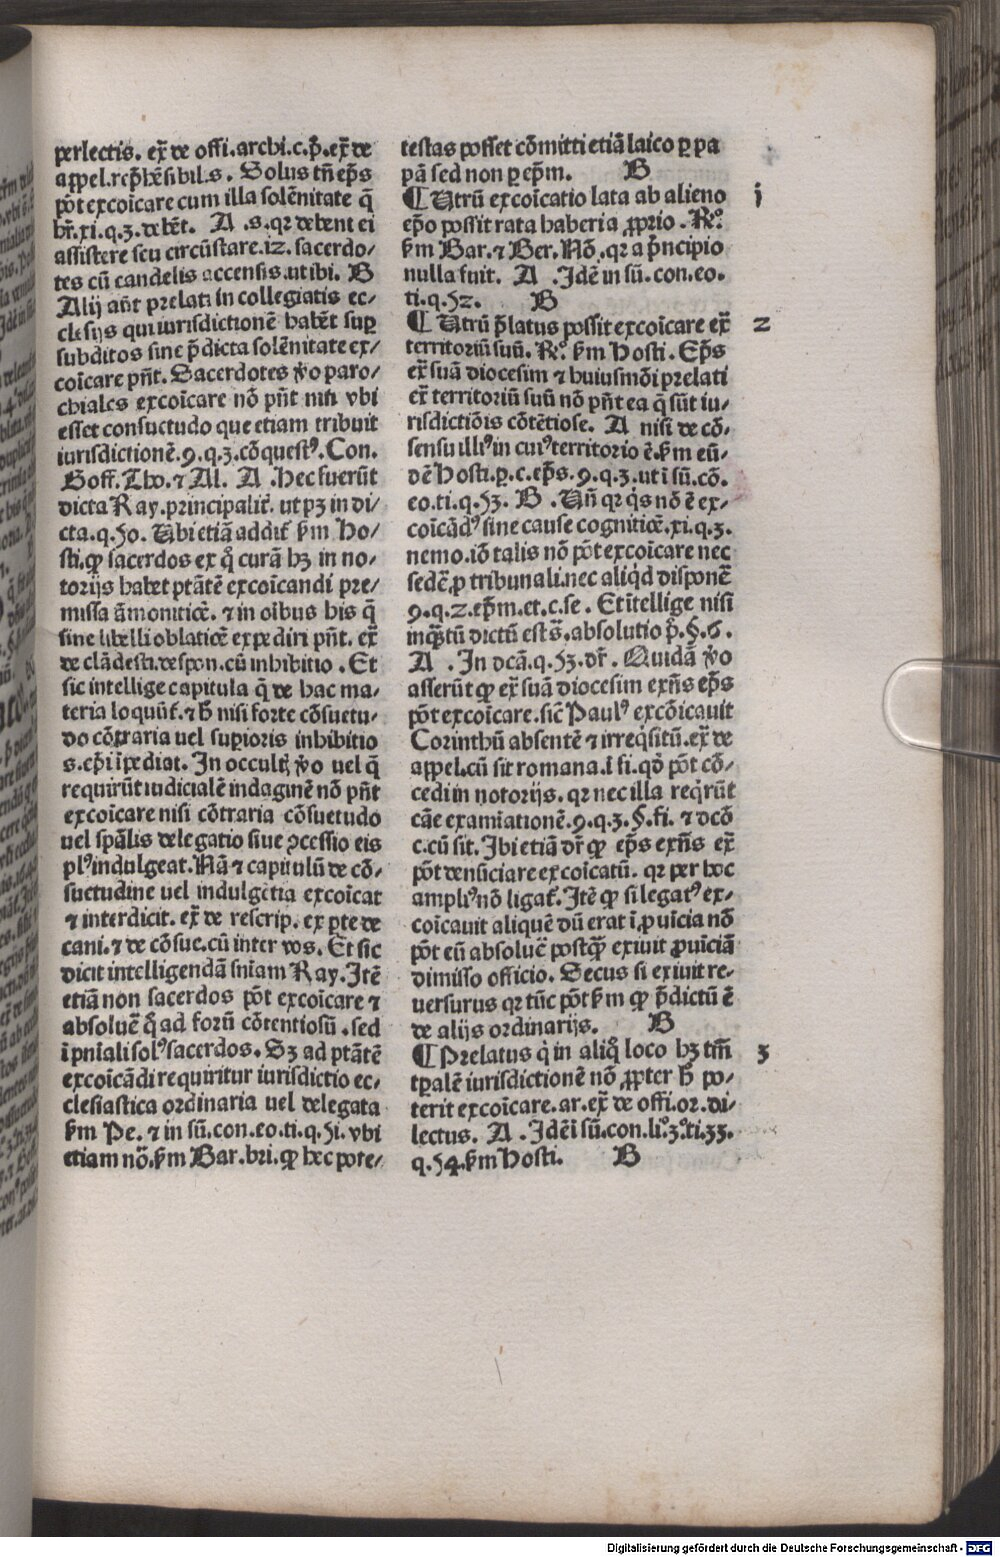 perlectis. ex̄ de offi.archi.c.p̄.ex̄ de
appel.rep̄hēsibil.s. Solus tn̄ ep̄s
pōt excoīcare cum illa solēnitate q̄
hr̄.xi.q.3.debēt. A .s.qr debent ei
assistere seu circūstare.12.sacerdo-
tes cū candelis accensis.ut ibi. B
Alij aūt prelati in collegiatis ec-
clesijs qui iurisdictionē habēt suꝑ
subditos sine p̄dicta solēnitate ex-
coīcare pn̄t. Sacerdotes v̊o paro-
chiales excoīcare nō pn̄t nisi vbi
esset consuetudo que etiam tribuit
iurisdictionē.9.q.3.cōquestꝰ. Con.
Goff. Tho. ⁊ Al. A .Hec fuerūt
dicta Ray.principalit̄. ut pꝫ in di-
cta.q.50. Ubi etiā addit̄ ẜm Ho-
sti.ꝙ sacerdos ex q̊ curā hꝫ in no-
torijs habet ptātē excoīcandi pre-
missa āmonitiōe. ⁊ in oībus his q̄
sine libelli oblatiōe expediri pn̄t. ex̄
de clādesti.despon.cū inhibitio . Et
sic intellige capitula q̄ de hac ma-
teria loquūt̄.⁊ h̄ nisi forte cōsuetu-
do cōtraria uel suꝑioris inhibitio
s.ep̄i īpediat. In occultꝭ v̊o uel q̄
requirūt iudicialē indaginē nō pn̄t
excoīcare nisi cōtraria cōsuetudo
uel spālis delegatio siue ꝯcessio eis
plꝰ indulgeat. Nā ⁊ capitulū de cō-
suetudine uel indulgētia excoīcat
⁊ interdicit. ex̄ de rescrip. ex ꝑte de
cani.⁊ de cōsue.cū inter vos. Et sic
dicit intelligendā sn̄iam Ray. Itē
etiā non sacerdos pōt excoīcare ⁊
absoluē q̊ ad forū cōtentiosū .sed
ī pn̄iali solꝰ sacerdos. Sꝫ ad ptātē
excoīcādi requiritur iurisdictio ec-
clesiastica ordinaria uel delegata
ẜm Pe. ⁊ in sū.con.eo.ti.q.51. vbi
etiam nō.ẜm Bar.bri.ꝙ hec pote-
testas posset cōmitti etiā laico ꝑ pa
pā sed non ꝑ ep̄m. B
¶ Utrū excoīcatio lata ab alieno 1
ep̄o possit rata haberi a ꝓprio . Rº.
ẜm Bar.⁊ Ber. Nō.qr a p̄ncipio
nulla fuit. A .Idē in sū.con.eo.
ti.q.52. B
¶ Utrū p̄latus possit excoīcare ex̄ 2
territoriū suū. Rº. ẜm Hosti. Ep̄s
ex̄ suā diocesim ⁊ huiusmōi prelati
ex̄ territoriū suū nō pn̄t ea q̄ sūt iu-
risdictiōis cōtētiose. A nisi de cō-
sensu illiꝰ in cuiꝰ territorio ē.ẜm eū-
dē Hosti.ꝑ.c.ep̄s.9.q.3.ut ī sū.cō.
eo.ti.q.53. B .Un̄ qr q̇s nō ē ex-
coīcādꝰ sine cause cognitiōe.xi.q.3.
nemo.iō talis nō pōt excoīcare nec
sedē ꝓ tribunali.nec aliq̇d disponē
9.q.2.ep̄m.et.c.se. Et ītellige nisi
inqꝫtū dictū est s̄.absolutio p̊.§.6.
A . In dcā.q.53.dr̄. Quidā v̊o
asserūt ꝙ ex̄ suā diocesim exn̄s ep̄s
pōt excoīcare.sic̄ Paulꝰ excōicauit
Corinthū absentē ⁊ irreq̇sitū.ex̄ de
appel.cū sit romana.ī fi.qō pōt cō-
cedi in notorijs. qr nec illa req̇rūt
cāe examiationē.9.q.3.§.fi. ⁊ dcō
c.cū sit. Ibi etiā dr̄ ꝙ ep̄s exn̄s ex̄
pōt denūciare excoīcatū. qr per hoc
ampliꝰ nō ligat̄. Itē ꝙ si legatꝰ ex-
coīcauit aliquē dū erat ī ꝓuīcia nō
pōt eū absoluē postqꝫ exiuit ꝓuīciā
dimisso officio. Secus si exiuit re-
uersurus qr tūc pōt ẜm ꝙ p̄dictū ē
de alijs ordinarijs. B
¶ Prelatus q̇ in aliq̊ loco hꝫ tm̄ 3
tꝑalē iurisdictionē nō ꝓpter h̄ po-
terit excoīcare.ar.ex̄ de offi.or.di-
lectus. A .Idē ī sū.con.liº.3º.ti.33.
q.54.ẜm Hosti. B
Digitalisierung gefördert durch die Deutsche Forschungsgemeinschaft - DFG